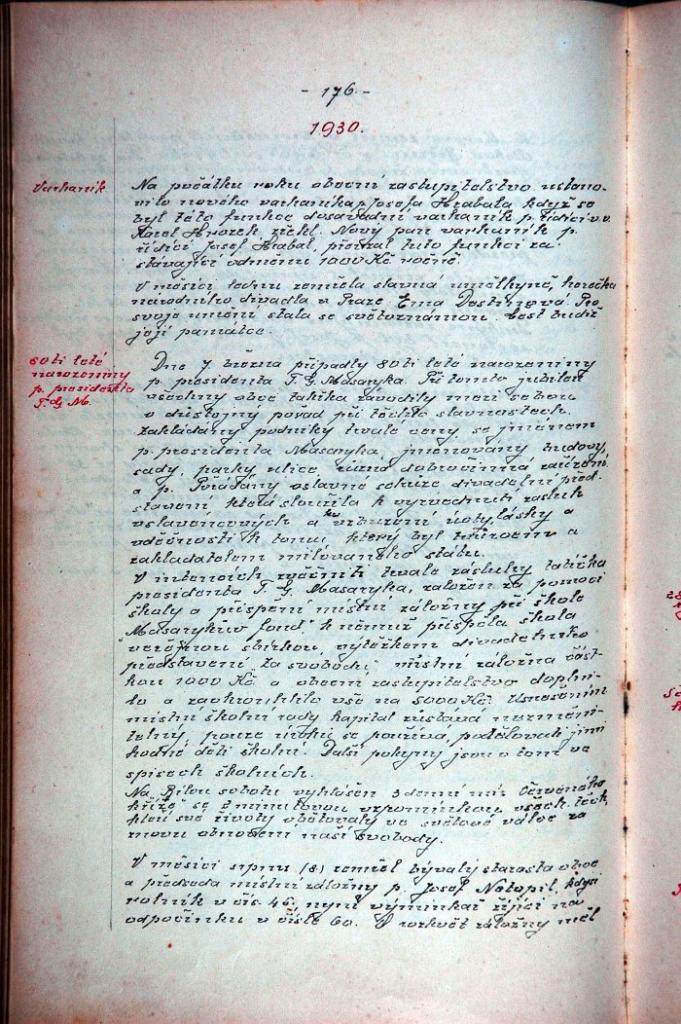 - 176. -
1930.
Varhaník.
Na počátku roku obecní zastupitelstvo ustano-
vilo nového varhaníka p. Josefa Hrabala, když se
byl této funkce dosavadní varhaník p. řídící v. v.
Karel zřekl. Nový pan varhaník p.
řídící Josef Hrabal, přibral tuto funkci za
stávající odměnu 1000 Kč ročně.
V měsíci lednu zemřela slavná umělkyně, herečka
národního divadla v Praze Ema Destinová. Pro
svoje umění stala se světoznámou. Čest budiž
její památce.
80 ti leté
narozeniny
p. presidenta
T. G. M.
Dne 7 března připadly 80 ti leté narozeniny
p. presidenta T. G. Masaryka. Při tomto jubileu
všechny obce takřka závodily mezi sebou
o důstojný pořad při těchto slavnostech.
Zakládány podniky trvalé ceny, se jménem
p. presidenta Masaryka, jmenovány budovy,
sady, parky, ulice, různá dobročinná zařízení
a p. Pořádány oslavné schůze divadelní před-
stavení, která sloužila k vyzvednutí zásluh
oslavencových a ku vzbuzení úcty, lásky a
vděčnosti k tomu, který byl tvůrcem a
zakladatelem milovaného státu.
V intencích trvalé zásluhy tatíčka
presidenta T. G. Masaryka, založen za pomoci
školy a přispění místní záložny při škole
"Masarykův fond", k němuž přispěla škola
veřejnou sbírkou, výtěžkem divadelního
představení "Za svobodu", místní záložna část-
kou 1000 Kč a obecní zastupitelstvo doplni-
lo a zaokrouhlilo vše na 5000 Kč. Usnesením
místní školní rady kapitál zůstává nezměni-
telný, pouze úroků se používá, podělovati jimi
hodné děti školní. Další pokyny jsou o tom ve
spisech školních.
Na Bílou sobotu vyhlášen 3 denní mír Červeného
kříže se 2 minutovou vzpomínkou všech těch,
kteří své životy obětovaly ve světové válce za
znovu obnovení naší svobody.
V měsíci srpnu (8.) zemřel bývalý starosta obce
a předseda místní záložny p. Josef Natopil, kdysi
rolník v čís. 45, nyní výminkář žijící na
odpočinku v čísle 60. O rozkvět záložny měl